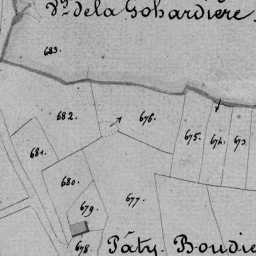 Vᵉ de la Gohardiere.
683.
682.
676.
675.
674.
673
681.
680.
679.
677.
678.
Pâty Boudie